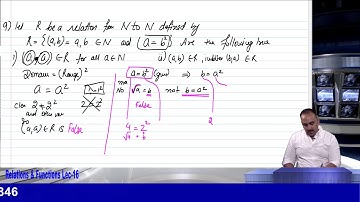 9) Let R be a relation from N to N defined by
R = {(a,b) = a, b ∈ N and (a = b²)} Are the following true
i) (a, a) ∈ R for all a ∈ N ii) (a,b) ∈ R implies (b,a) ∈ R
Domain = (Range)²
a = a²
2 ≠ 2²
(a, a) ∈ R is False
a = b² (given) ⇒ b = a²
No √a = b not b = a²
False
4 = 2²
√a = b
2
Relations & Functions Lec-16
846